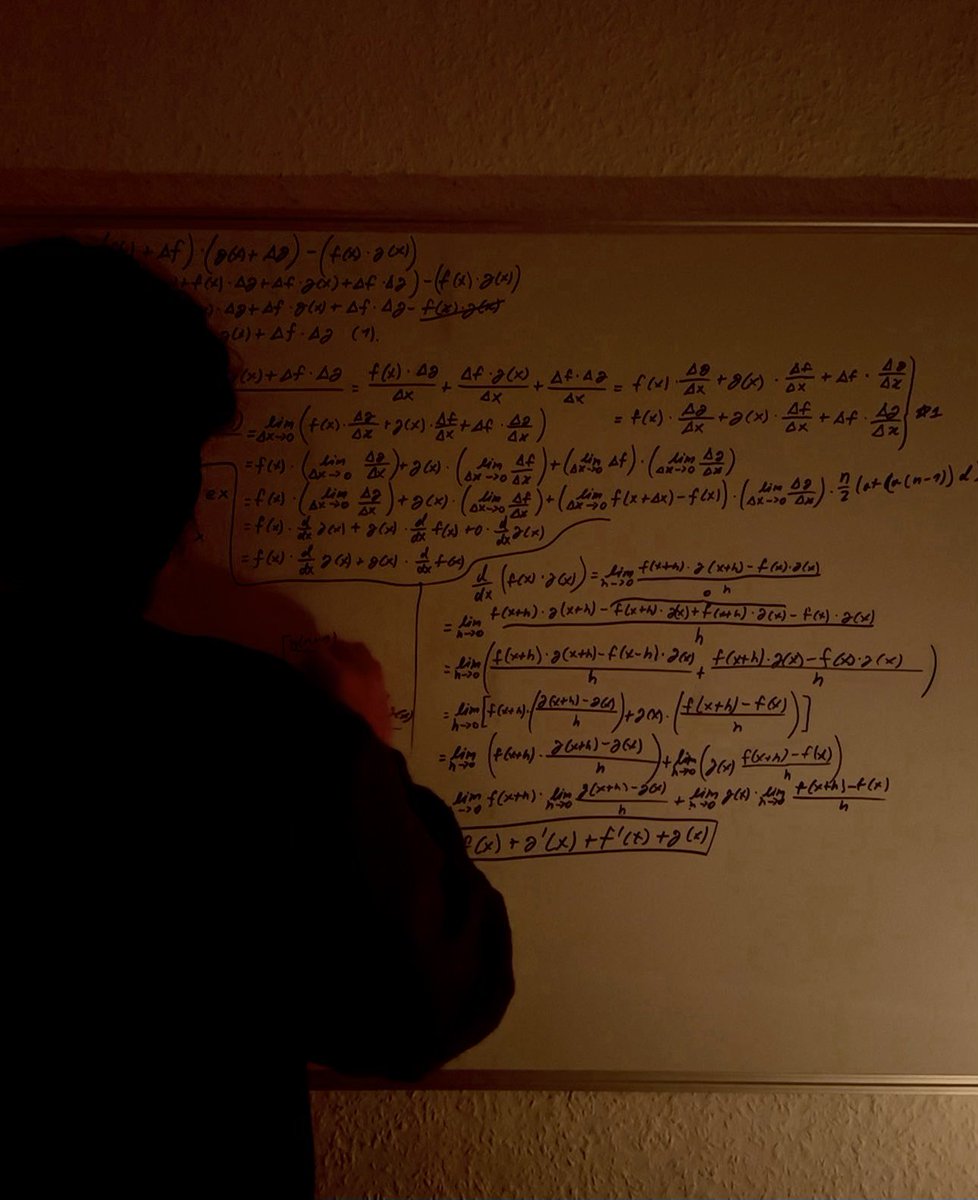 + Δf) · (g(x) + Δg) − (f(x) · g(x))
+ f(x) · Δg + Δf · g(x) + Δf · Δg) − (f(x) · g(x))
· Δg + Δf · g(x) + Δf · Δg − f(x) · g(x)
g(x) + Δf · Δg (1).
(x) + Δf · Δg = f(x) · Δg / Δx + Δf · g(x) / Δx + Δf · Δg / Δx = f(x) · Δg/Δx + g(x) · Δf/Δx + Δf · Δg/Δx
= lim Δx→0 (f(x) · Δg/Δx + g(x) · Δf/Δx + Δf · Δg/Δx) = f(x) · Δg/Δx + g(x) · Δf/Δx + Δf · Δg/Δx #1
= f(x) · (lim Δx→0 Δg/Δx) + g(x) · (lim Δx→0 Δf/Δx) + (lim Δx→0 Δf) · (lim Δx→0 Δg/Δx)
= f(x) · (lim Δx→0 Δg/Δx) + g(x) · (lim Δx→0 Δf/Δx) + (lim Δx→0 f(x+Δx) − f(x)) · (lim Δx→0 Δg/Δx) · n/2
= f(x) · d/dx g(x) + g(x) · d/dx f(x) + 0 · d/dx g(x)
= f(x) · d/dx g(x) + g(x) · d/dx f(x)
d/dx (f(x) · g(x)) = lim h→0 f(x+h) · g(x+h) − f(x) · g(x) / h
0
= lim h→0 f(x+h) · g(x+h) − f(x+h) · g(x) + f(x+h) · g(x) − f(x) · g(x) / h
= lim h→0 (f(x+h) · g(x+h) − f(x−h) · g(x) / h + f(x+h) · g(x) − f(x) · g(x) / h)
= lim h→0 [f(x+h) · (g(x+h) − g(x) / h) + g(x) · (f(x+h) − f(x) / h)]
= lim h→0 (f(x+h) · g(x+h) − g(x) / h) + lim h→0 (g(x) f(x+h) − f(x) / h)
lim →0 f(x+h) · lim h→0 g(x+h) − g(x) / h + lim h→0 g(x) · lim h→0 f(x+h) − f(x) / h
f(x) + g'(x) + f'(x) + g(x)